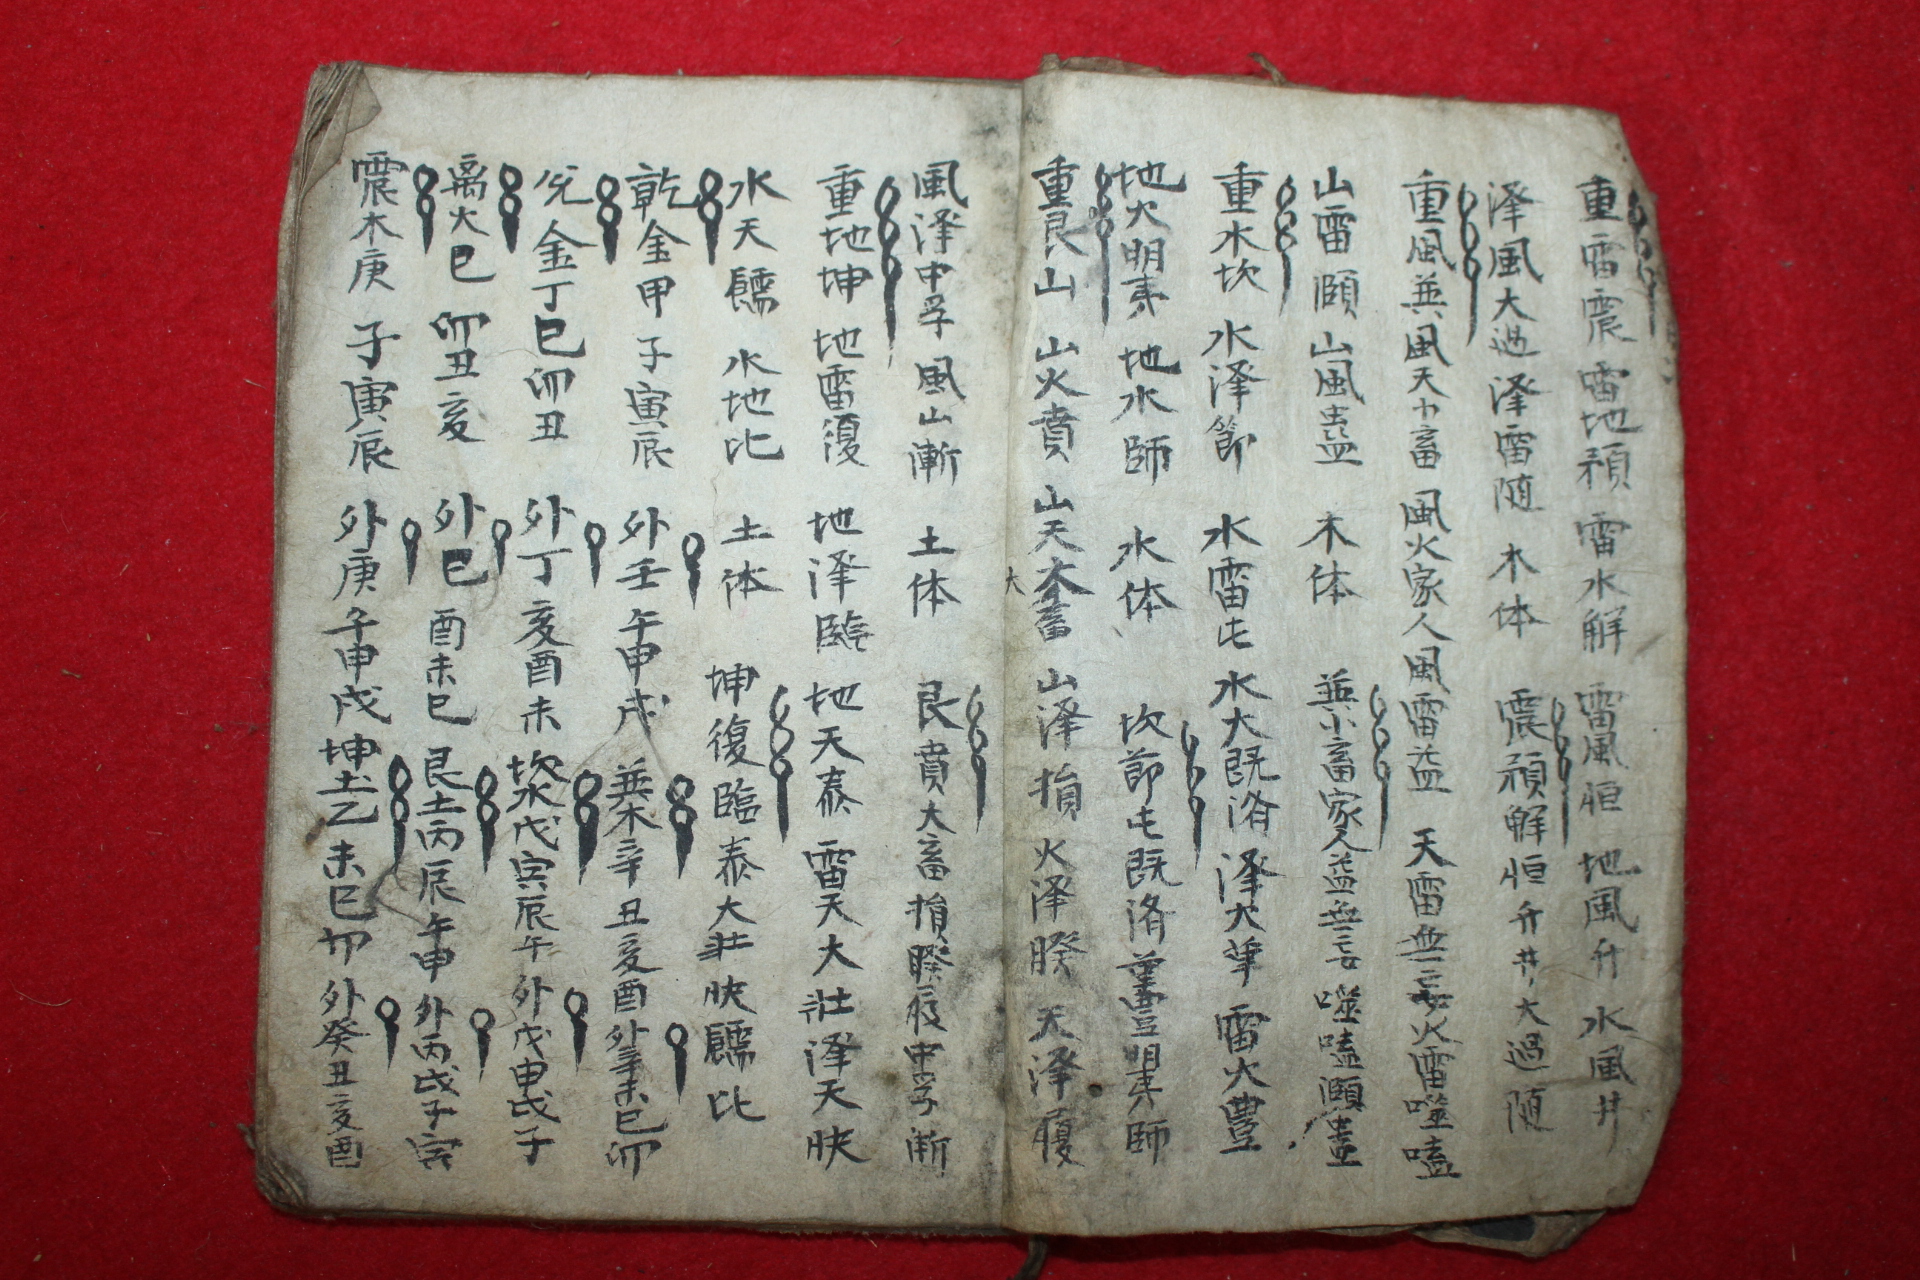 重雷震 雷地預 雷水解 雷風恒 地風升 水風井
泽風大過 泽雷随 木体 震預解恒升井大過随
重風巽 風天小畜 風火家人 風雷益 天雷無妄 火雷噬嗑
山雷頤 山風蠱 木体 巽小畜家人益無妄噬嗑頤蠱
重水坎 水泽節 水雷屯 水火既済 泽火革 雷火豊
地火明夷 地水師 水体 坎節屯既済革豊明夷師
重艮山 山火賁 山天大畜 山泽損 火泽睽 天泽履
大
風泽中孚 風山漸 土体 艮賁大畜損睽履中孚漸
重地坤 地雷復 地泽臨 地天泰 雷天大壮 泽天快
水天需 水地比 土体 坤復臨泰大壮快需比
乾金甲子寅辰 外壬午申戌 巽木辛丑亥酉 外辛未巳卯
兌金丁巳卯丑 外丁亥酉未 坎水戊寅辰午 外戊申戌子
离火巳卯丑亥 外巳酉未巳 艮土丙辰午申 外丙戌子寅
震木庚子寅辰 外庚午申戌 坤土乙未巳卯 外癸丑亥酉